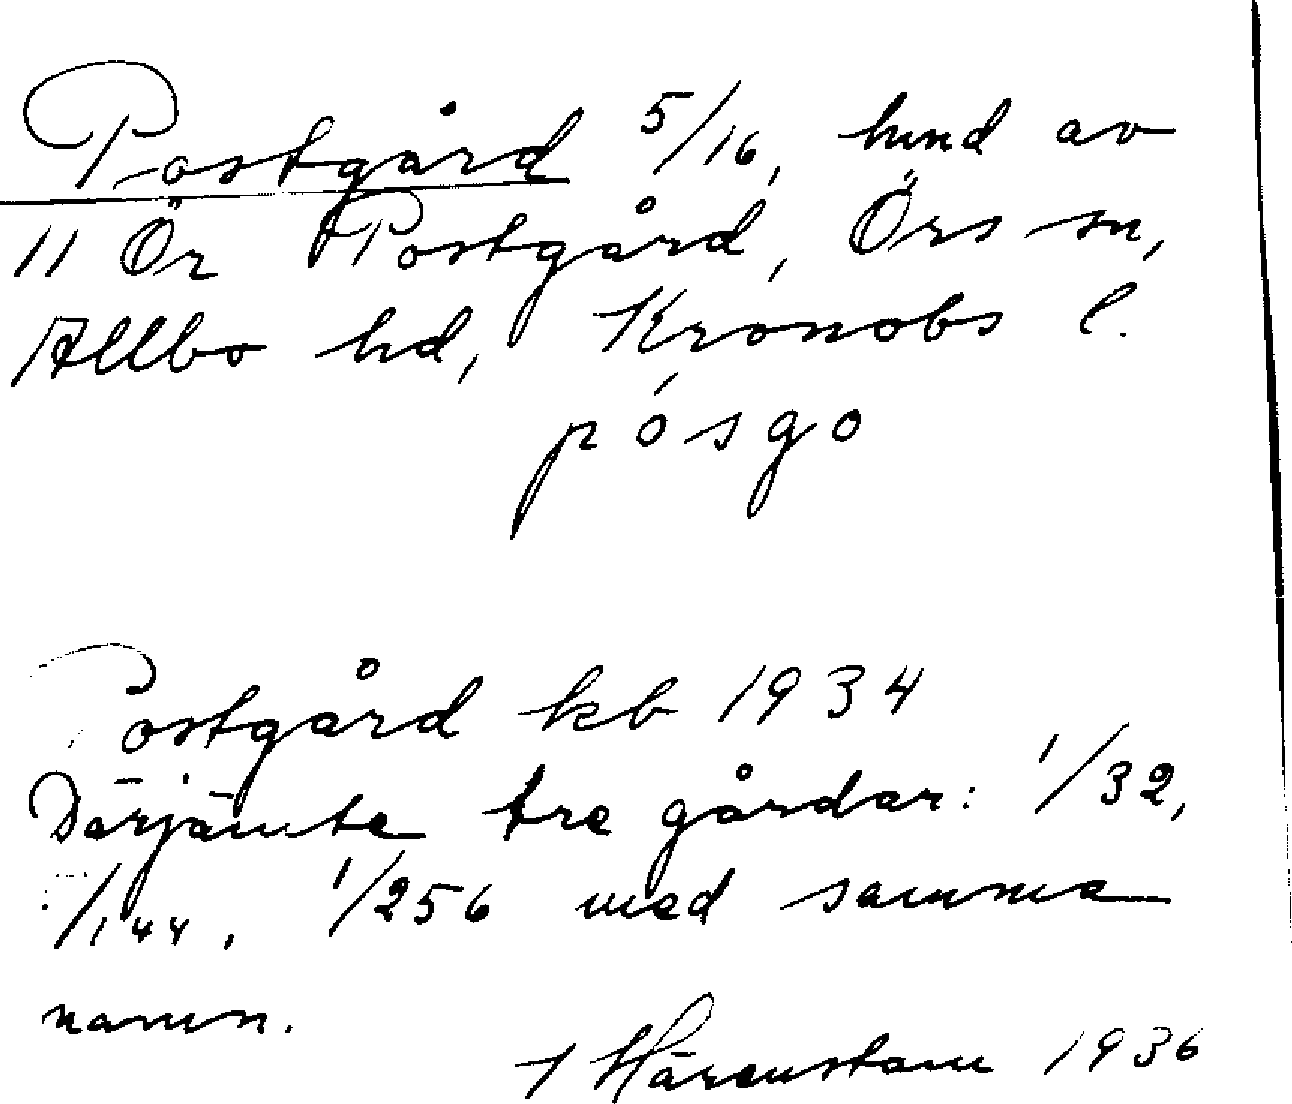 Postgård 5/16, hmd av
11 Ör Postgård, Örs sn,
Allbo hd, Kronobs l.
pósgo
Postgård kb 1934
Därjämte tre gårdar: 1/32,
/144, 1/256 med samma
namn.
Härenstam 1936